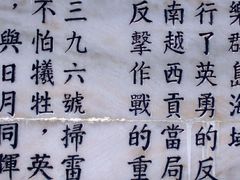 樂群島海域
行了英勇的反
南越西貢當局
反擊作戰的重
三九六號掃雷
不怕犧牲，英
，與日月同輝